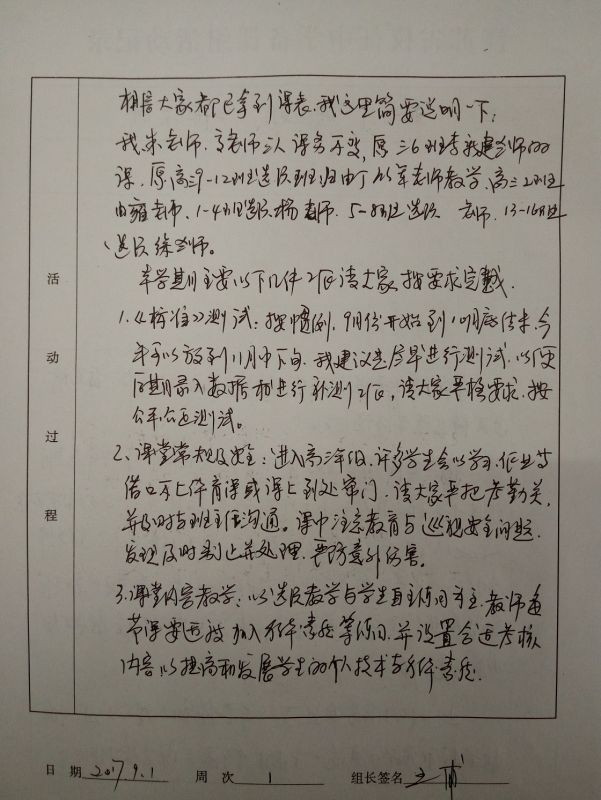 相信大家都已拿到课表,我这里简要说明一下:
我、朱老师、高老师三人课务不变,原三6班李建老师的
课,原高三9-12班选段班由丁从军老师教学,高三2班
由雍老师、1-4班选段杨老师、5-8班选段 老师、13-16班
选段徐老师。
本学期主要以下几件工作请大家按要求完成.
1.《标准》测试:按惯例,9月份开始到10月底结束,今
年可以放到11月中下旬,我建议尽早进行测试,以便
后期录入数据和进行补测工作,请大家严格要求,按
公平公正测试。
2、课堂常规及安全:进入高三年级,许多学生会以学习、作业等
借口不上体育课或课上到处串门,请大家严把考勤关,
并及时与班主任沟通。课中注意教育与巡视安全问题,
发现及时制止并处理,严防意外伤害。
3.课堂内容教学:以选段教学与学生自主练习为主,教师每
节课要适放加入身体素质等练习,并设置合适考核
内容以提高和发展学生的个人技术与身体素质.
活
动
过
程
日 期 2017.9.1 周 次 1 组长签名